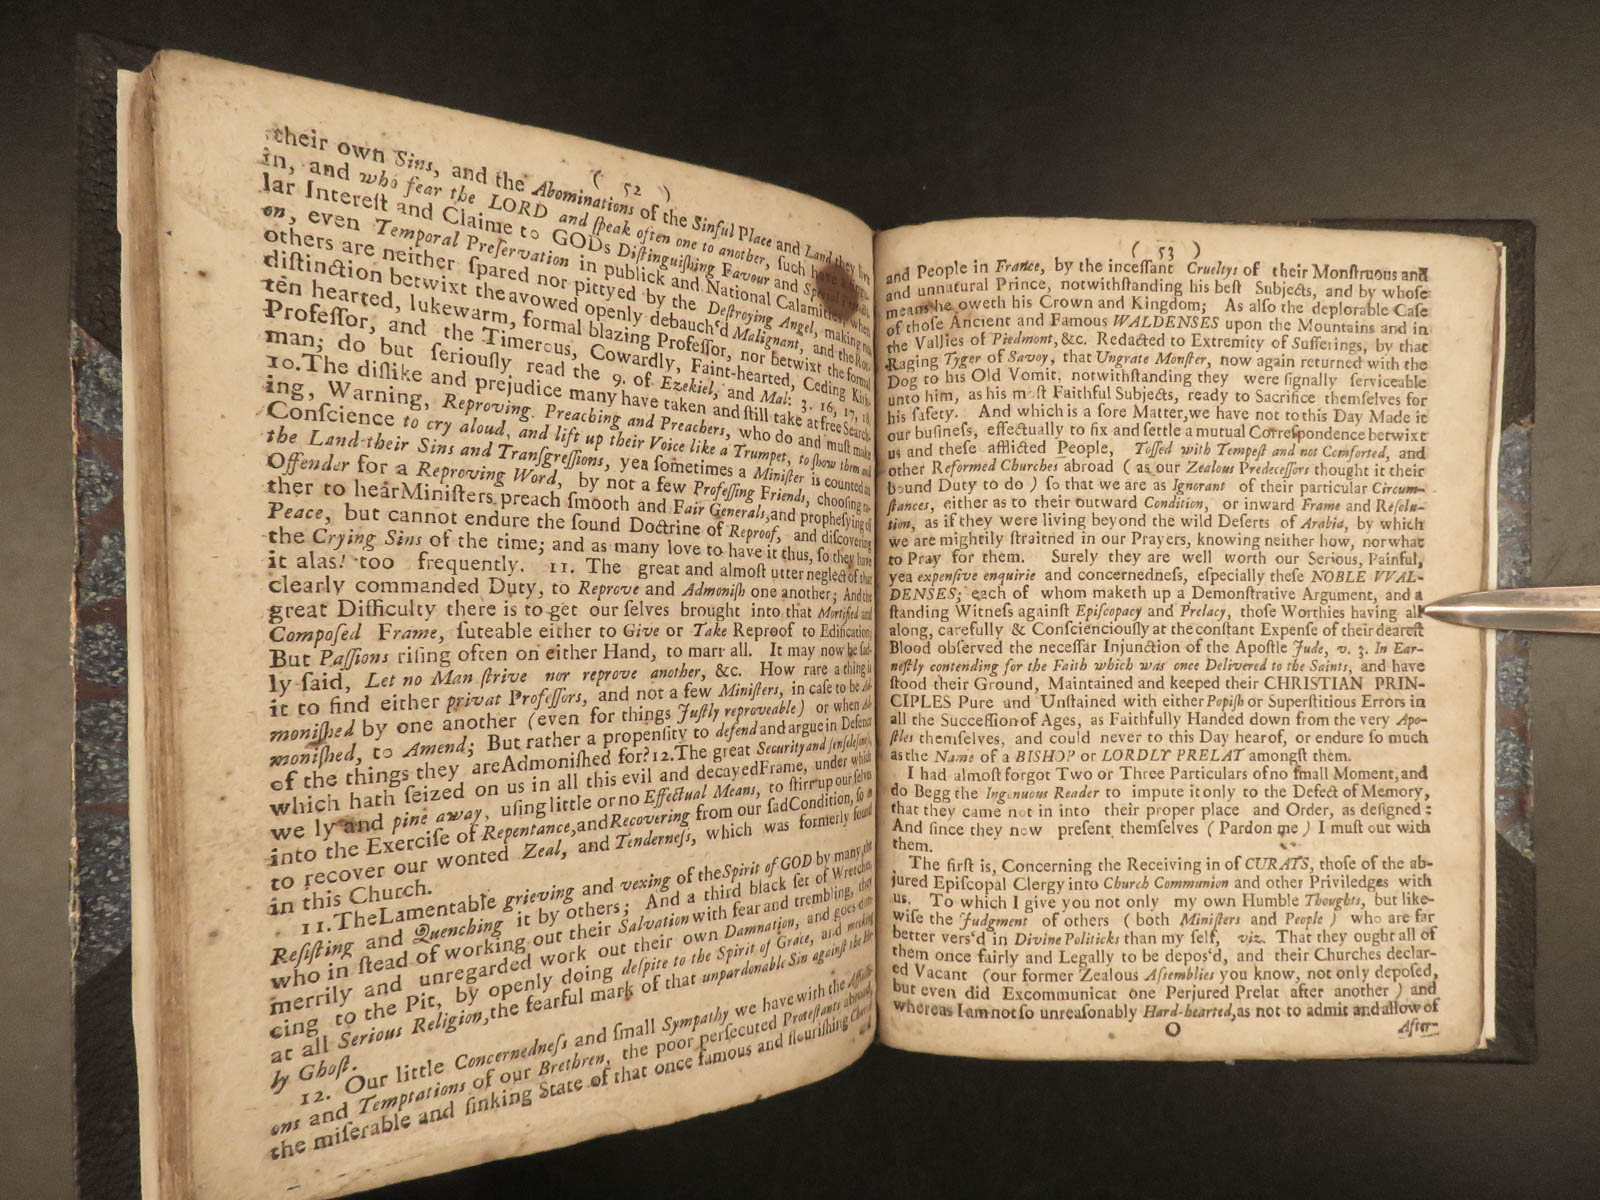 ( 52 )
their own Sins, and the Abominations of the Sinful Place and Land they live
in, and who fear the LORD and ſpeak often one to another, ſuch have a
lar Intereſt and Claime to GODs Diſtinguiſhing Favour and
on, even Temporal Preſervation in publick and National Calamities, when
others are neither ſpared nor pittyed by the Deſtroying Angel, making no
diſtinction betwixt the avowed openly debauch'd Malignant, and the Rot-
ten hearted, lukewarm, formal blazing Profeſſor, nor betwixt the formal
Profeſſor, and the Timerous, Cowardly, Faint-hearted, Ceding Kirk-
man; do but ſeriouſly read the 9. of Ezekiel, and Mal: 3. 16, 17, 18.
10. The diſlike and prejudice many have taken and ſtill take at free Search-
ing, Warning, Reproving Preaching and Preachers, who do and muſt make
Conſcience to cry aloud, and lift up their Voice like a Trumpet, to ſhow them and
the Land their Sins and Tranſgreſſions, yea ſometimes a Miniſter is counted an
Offender for a Reproving Word, by not a few Profeſſing Friends, chooſing ra-
ther to hear Miniſters preach ſmooth and Fair Generals, and propheſying of
Peace, but cannot endure the ſound Doctrine of Reproof, and diſcovering
the Crying Sins of the time; and as many love to have it thus, ſo they have
it alas! too frequently. 11. The great and almoſt utter neglect of that
clearly commanded Duty, to Reprove and Admoniſh one another; And the
great Difficulty there is to get our ſelves brought into that Mortified and
Compoſed Frame, ſuteable either to Give or Take Reproof to Edification;
But Paſſions riſing often on either Hand, to marr all. It may now be ſad-
ly ſaid, Let no Man ſtrive nor reprove another, &c. How rare a thing is
it to find either privat Profeſſors, and not a few Miniſters, in caſe to be Ad-
moniſhed by one another (even for things Juſtly reproveable) or when Ad-
moniſhed, to Amend; But rather a propenſity to defend and argue in Defence
of the things they are Admoniſhed for? 12. The great Security and ſenſeleſsneſs,
which hath ſeized on us in all this evil and decayed Frame, under which
we ly and pine away, uſing little or no Effectual Means, to ſtirr up our ſelves
into the Exerciſe of Repentance, and Recovering from our ſad Condition, ſo as
to recover our wonted Zeal, and Tenderneſs, which was formerly found
in this Church.
11. The Lamentable grieving and vexing of the Spirit of GOD by many, the
Reſiſting and Quenching it by others; And a third black ſet of Wretches,
who in ſtead of working out their Salvation with fear and trembling, they
merrily and unregarded work out their own Damnation, and goes dan-
cing to the Pit, by openly doing deſpite to the Spirit of Grace, and mocking
at all Serious Religion, the fearful mark of that unpardonable Sin againſt the Ho-
ly Ghoſt.
12. Our little Concernedneſs and ſmall Sympathy we have with the Afflicti-
ons and Temptations of our Brethren, the poor perſecuted Proteſtants abroad,
the miſerable and ſinking State of that once famous and flouriſhing Church
and
( 53 )
and People in France, by the inceſſant Crueltys of their Monſtruous and
and unnatural Prince, notwithſtanding his beſt Subjects, and by whoſe
means he oweth his Crown and Kingdom; As alſo the deplorable Caſe
of thoſe Ancient and Famous WALDENSES upon the Mountains and in
the Vallies of Piedmont, &c. Redacted to Extremity of Sufferings, by that
Raging Tyger of Savoy, that Ungrate Monſter, now again returned with the
Dog to his Old Vomit, notwithſtanding they were ſignally ſerviceable
unto him, as his moſt Faithful Subjects, ready to Sacrifice themſelves for
his ſafety. And which is a ſore Matter, we have not to this Day Made it
our buſineſs, effectually to fix and ſettle a mutual Correſpondence betwixt
us and theſe afflicted People, Toſſed with Tempeſt and not Comforted, and
other Reformed Churches abroad ( as our Zealous Predeceſſors thought it their
bound Duty to do ) ſo that we are as Ignorant of their particular Circum-
ſtances, either as to their outward Condition, or inward Frame and Reſolu-
tion, as if they were living beyond the wild Deſerts of Arabia, by which
we are mightily ſtraitned in our Prayers, knowing neither how, nor what
to Pray for them. Surely they are well worth our Serious, Painful,
yea expenſive enquirie and concernedneſs, eſpecially theſe NOBLE VVAL-
DENSES; each of whom maketh up a Demonſtrative Argument, and a
ſtanding Witneſs againſt Epiſcopacy and Prelacy, thoſe Worthies having all
along, carefully & Conſcienciouſly at the conſtant Expenſe of their deareſt
Blood obſerved the neceſſar Injunction of the Apoſtle Jude, v. 3. In Ear-
neſtly contending for the Faith which was once Delivered to the Saints, and have
ſtood their Ground, Maintained and keeped their CHRISTIAN PRIN-
CIPLES Pure and Unſtained with either Popiſh or Superſtitious Errors in
all the Succeſſion of Ages, as Faithfully Handed down from the very Apo-
ſtles themſelves, and could never to this Day hear of, or endure ſo much
as the Name of a BISHOP or LORDLY PRELAT amongſt them.
I had almoſt forgot Two or Three Particulars of no ſmall Moment, and
do Begg the Ingenuous Reader to impute it only to the Defect of Memory,
that they came not in into their proper place and Order, as deſigned :
And ſince they now preſent themſelves ( Pardon me ) I muſt out with
them.
The firſt is, Concerning the Receiving in of CURATS, thoſe of the ab-
jured Epiſcopal Clergy into Church Communion and other Priviledges with
us. To which I give you not only my own Humble Thoughts, but like-
wiſe the Judgment of others ( both Miniſters and People ) who are far
better vers'd in Divine Politicks than my ſelf, viz. That they ought all of
them once fairly and Legally to be depos'd, and their Churches declar-
ed Vacant (our former Zealous Aſſemblies you know, not only depoſed,
but even did Excommunicat one Perjured Prelat after another ) and
whereas I am not ſo unreaſonably Hard-hearted, as not to admit and allow of
O
After-